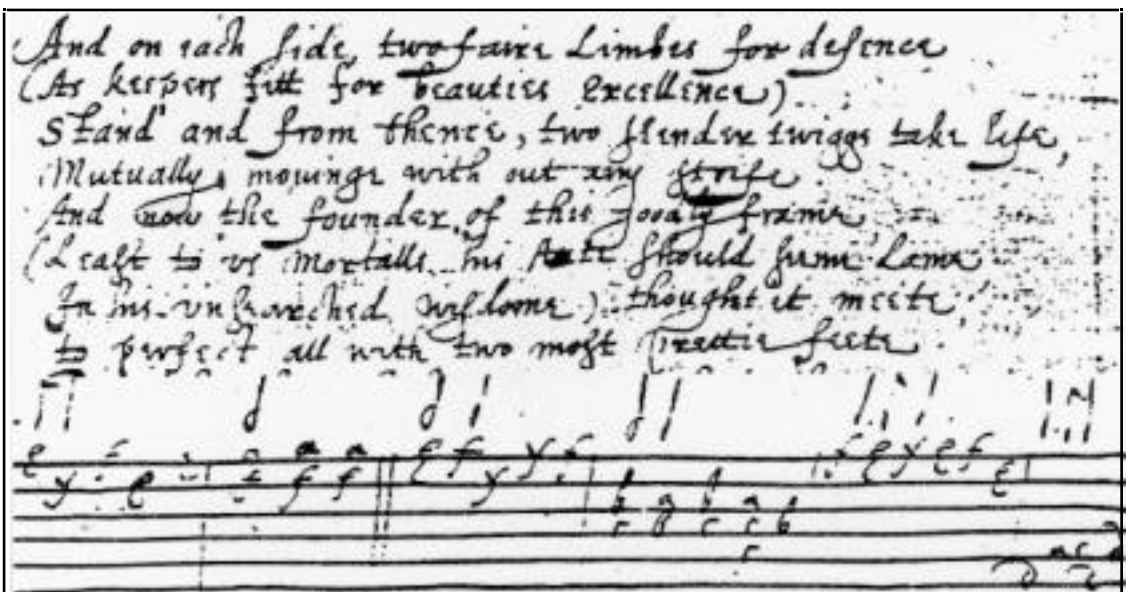 And on each side, two faire Limbes for defence
(As keepers fitt for beauties excellence)
Stand and from thence, two slender twiggs take life,
Mutually movinge with out any strife
And now the founder of this goodly frame
(Least to us Mortalls his Arte should seeme Lame
In his unsearched wysdome) thought it meete
to perfect all with two most prettie feete